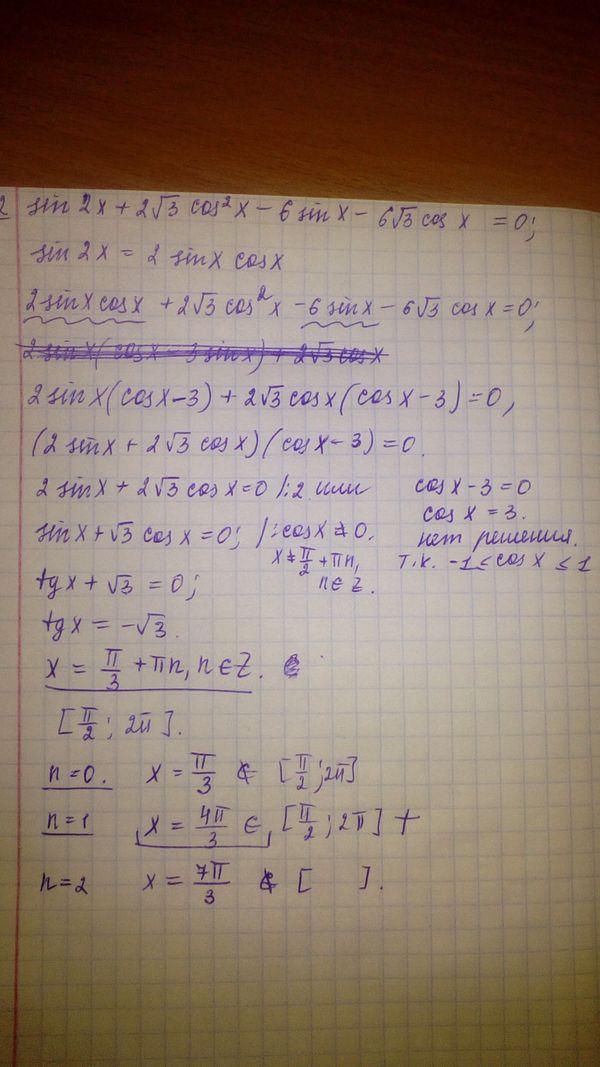 2 sin 2x + 2√3 cos²x − 6 sin x − 6√3 cos x = 0;
sin 2x = 2 sin x cos x
2 sin x cos x + 2√3 cos²x − 6 sin x − 6√3 cos x = 0;
2 sin x (cos x − 3 sin x) + 2√3 cos x
2 sin x (cos x − 3) + 2√3 cos x (cos x − 3) = 0,
(2 sin x + 2√3 cos x)(cos x − 3) = 0.
2 sin x + 2√3 cos x = 0 |:2 или cos x − 3 = 0
sin x + √3 cos x = 0; |: cos x ≠ 0. cos x = 3.
x ≠ π/2 + πn, n ∈ Z. нет решения.
т.к. −1 ≤ cos x ≤ 1
tg x + √3 = 0;
tg x = −√3.
x = π/3 + πn, n ∈ Z.
[π/2; 2π].
n = 0. x = π/3 ∉ [π/2; 2π]
n = 1 x = 4π/3 ∈ [π/2; 2π] +
n = 2 x = 7π/3 ∉ [ ].